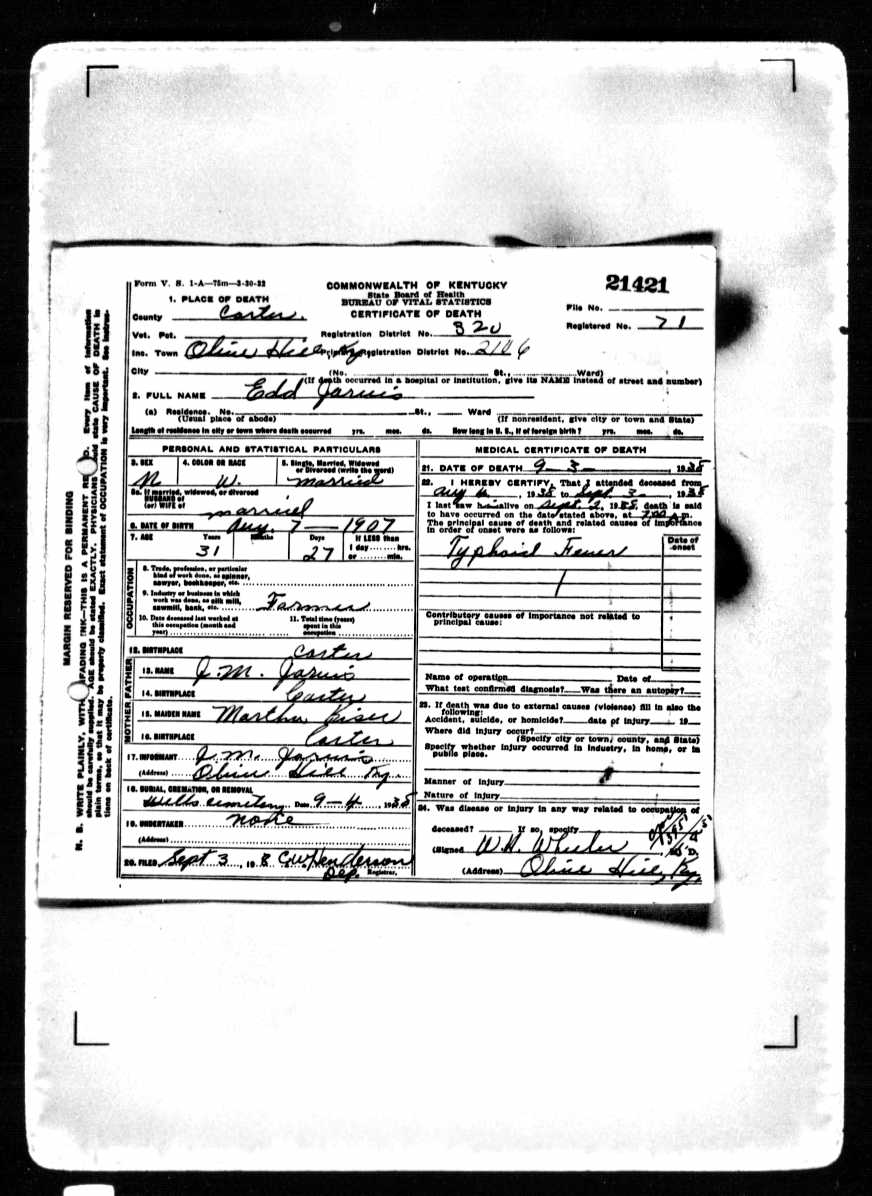 Form V. S. 1-A—75m—3-30-32
COMMONWEALTH OF KENTUCKY
State Board of Health
BUREAU OF VITAL STATISTICS
CERTIFICATE OF DEATH
21421
File No.
Registered No. 71
1. PLACE OF DEATH
County Carter.
Vot. Pct.
Registration District No. 320
Inc. Town Olive Hill Ky
Primary Registration District No. 2106
City (No. St., Ward)
(If death occurred in a hospital or institution, give its NAME instead of street and number)
2. FULL NAME Edd Jarvis
(a) Residence. No. St., Ward
(Usual place of abode) (If nonresident, give city or town and State)
Length of residence in city or town where death occurred yrs. mos. ds. How long in U. S., if of foreign birth? yrs. mos. ds.
PERSONAL AND STATISTICAL PARTICULARS
3. SEX 4. COLOR OR RACE 5. Single, Married, Widowed
or Divorced (write the word)
M W. married
5a. If married, widowed, or divorced
HUSBAND of
(or) WIFE of married
6. DATE OF BIRTH Aug. 7—1907
7. AGE Years Months Days If LESS than
1 day hrs.
31 27 or min.
OCCUPATION
8. Trade, profession, or particular
kind of work done, as spinner,
sawyer, bookkeeper, etc.
9. Industry or business in which
work was done, as silk mill,
sawmill, bank, etc. Farmer
10. Date deceased last worked at
this occupation (month and
year)
11. Total time (years)
spent in this
occupation
12. BIRTHPLACE Carter
FATHER
13. NAME J. M. Jarvis
14. BIRTHPLACE Carter
MOTHER
15. MAIDEN NAME Martha Kiser
16. BIRTHPLACE Carter
17. INFORMANT J. M. Jarvis
(Address) Olive Hill Ky.
18. BURIAL, CREMATION, OR REMOVAL
cemetery Date 9-4, 1938
19. UNDERTAKER none
(Address)
20. FILED Sept 3, 193 8 C.W. Henderson
Dep. Registrar.
MEDICAL CERTIFICATE OF DEATH
21. DATE OF DEATH 9-3-, 1938
22. I HEREBY CERTIFY, That I attended deceased from
Aug , 1938 to Sept. 3, 1938
I last saw him alive on Sept. 2, 1938, death is said
to have occurred on the date stated above, at m.
The principal cause of death and related causes of importance
in order of onset were as follows:
Date of
onset
Typhoid Fever
Contributory causes of importance not related to
principal cause:
Name of operation Date of
What test confirmed diagnosis? Was there an autopsy?
23. If death was due to external causes (violence) fill in also the
following:
Accident, suicide, or homicide? date of injury 19
Where did injury occur?
(Specify city or town, county, and State)
Specify whether injury occurred in industry, in home, or in
public place.
Manner of injury
Nature of injury
24. Was disease or injury in any way related to occupation of
deceased? If so, specify
(Signed W. H. Wheeler M. D.
(Address) Olive Hill, Ky.
MARGIN RESERVED FOR BINDING
N. B. WRITE PLAINLY, WITH UNFADING INK—THIS IS A PERMANENT RECORD. Every item of information
should be carefully supplied. AGE should be stated EXACTLY. PHYSICIANS should state CAUSE OF DEATH in
plain terms, so that it may be properly classified. Exact statement of OCCUPATION is very important. See instruc-
tions on back of certificate.